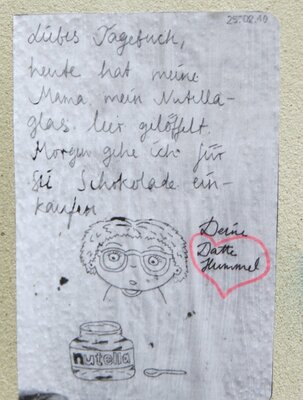 25.02.40
Liebes Tagebuch,
heute hat meine
Mama mein Nutella-
glas leer gelöffelt.
Morgen gehe ich für
sie Schokolade ein-
kaufen
Deine
Datte
Hummel
nutella